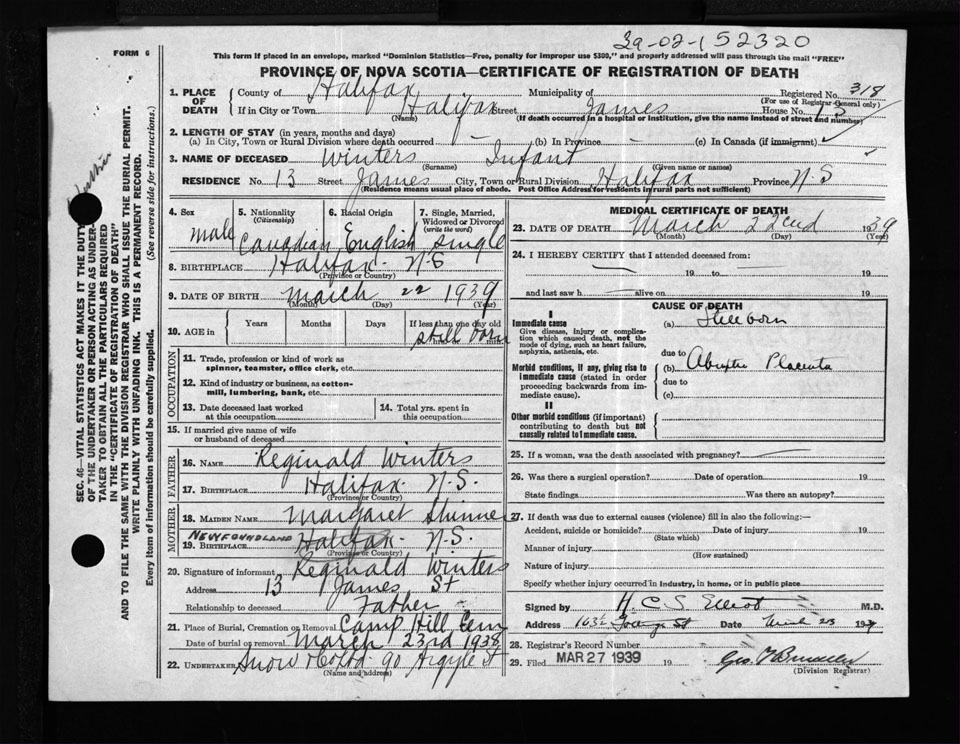 39-02-152320
FORM 6
This form if placed in an envelope, marked "Dominion Statistics—Free, penalty for improper use $300," and properly addressed will pass through the mail "FREE"
PROVINCE OF NOVA SCOTIA—CERTIFICATE OF REGISTRATION OF DEATH
1. PLACE OF DEATH County of Halifax Municipality of Registered No. 318
(For use of Registrar-General only)
If in City or Town Halifax Street James House No. 13
(Name) (If death occurred in a hospital or institution, give the name instead of street and number)
2. LENGTH OF STAY (in years, months and days)
(a) In City, Town or Rural Division where death occurred – (b) In Province – (c) In Canada (if immigrant)
3. NAME OF DECEASED Winters Infant
(Surname) (Given name or names)
RESIDENCE No. 13 Street James City, Town or Rural Division Halifax Province N-S
(Residence means usual place of abode. Post Office Address for residents in rural parts not sufficient)
4. Sex 5. Nationality (Citizenship) 6. Racial Origin 7. Single, Married, Widowed or Divorced (write the word)
male Canadian English single
8. BIRTHPLACE Halifax - N-S
(Province or Country)
9. DATE OF BIRTH March 22 1939
(Month) (Day) (Year)
10. AGE in Years Months Days If less than one day old
still born
OCCUPATION
11. Trade, profession or kind of work as spinner, teamster, office clerk, etc.
12. Kind of industry or business, as cotton-mill, lumbering, bank, etc.
13. Date deceased last worked at this occupation
14. Total yrs. spent in this occupation
15. If married give name of wife or husband of deceased
FATHER
16. NAME Reginald Winters
17. BIRTHPLACE Halifax - N.S.
(Province or Country)
MOTHER
18. MAIDEN NAME Margaret Skinner
NEWFOUNDLAND
19. BIRTHPLACE Halifax - N.S.
(Province or Country)
20. Signature of informant Reginald Winters
Address 13 James St
Relationship to deceased Father
21. Place of Burial, Cremation or Removal Camp Hill Cem
Date of burial or removal March 23rd 1938
22. UNDERTAKER Snow & Co Ltd - 90 Argyle St
(Name and address)
MEDICAL CERTIFICATE OF DEATH
23. DATE OF DEATH March 22nd 1939
(Month) (Day) (Year)
24. I HEREBY CERTIFY that I attended deceased from:
19 to 19
and last saw h alive on 19
CAUSE OF DEATH
I
Immediate cause
Give disease, injury or complication which caused death, not the mode of dying, such as heart failure, asphyxia, asthenia, etc.
(a) Stillborn
due to
Morbid conditions, if any, giving rise to immediate cause (stated in order proceeding backwards from immediate cause).
(b) Abruptio Placenta
due to
(c)
II
Other morbid conditions (if important) contributing to death but not causally related to immediate cause.
25. If a woman, was the death associated with pregnancy?
26. Was there a surgical operation? Date of operation 19
State findings Was there an autopsy?
27. If death was due to external causes (violence) fill in also the following:—
Accident, suicide or homicide? Date of injury 19
(State which)
Manner of injury
(How sustained)
Nature of injury
Specify whether injury occurred in industry, in home, or in public place
Signed by H. C. S. Elliot M.D.
Address St Date 23 1939
28. Registrar's Record Number
29. Filed MAR 27 1939 19
(Division Registrar)
SEC. 46—VITAL STATISTICS ACT MAKES IT THE DUTY
OF THE UNDERTAKER OR PERSON ACTING AS UNDER-
TAKER TO OBTAIN ALL THE PARTICULARS REQUIRED
IN THE "CERTIFICATE OF REGISTRATION OF DEATH"
AND TO FILE THE SAME WITH THE DIVISION REGISTRAR WHO SHALL ISSUE THE BURIAL PERMIT.
WRITE PLAINLY WITH UNFADING INK. THIS IS A PERMANENT RECORD.
Every item of information should be carefully supplied. (See reverse side for instructions.)